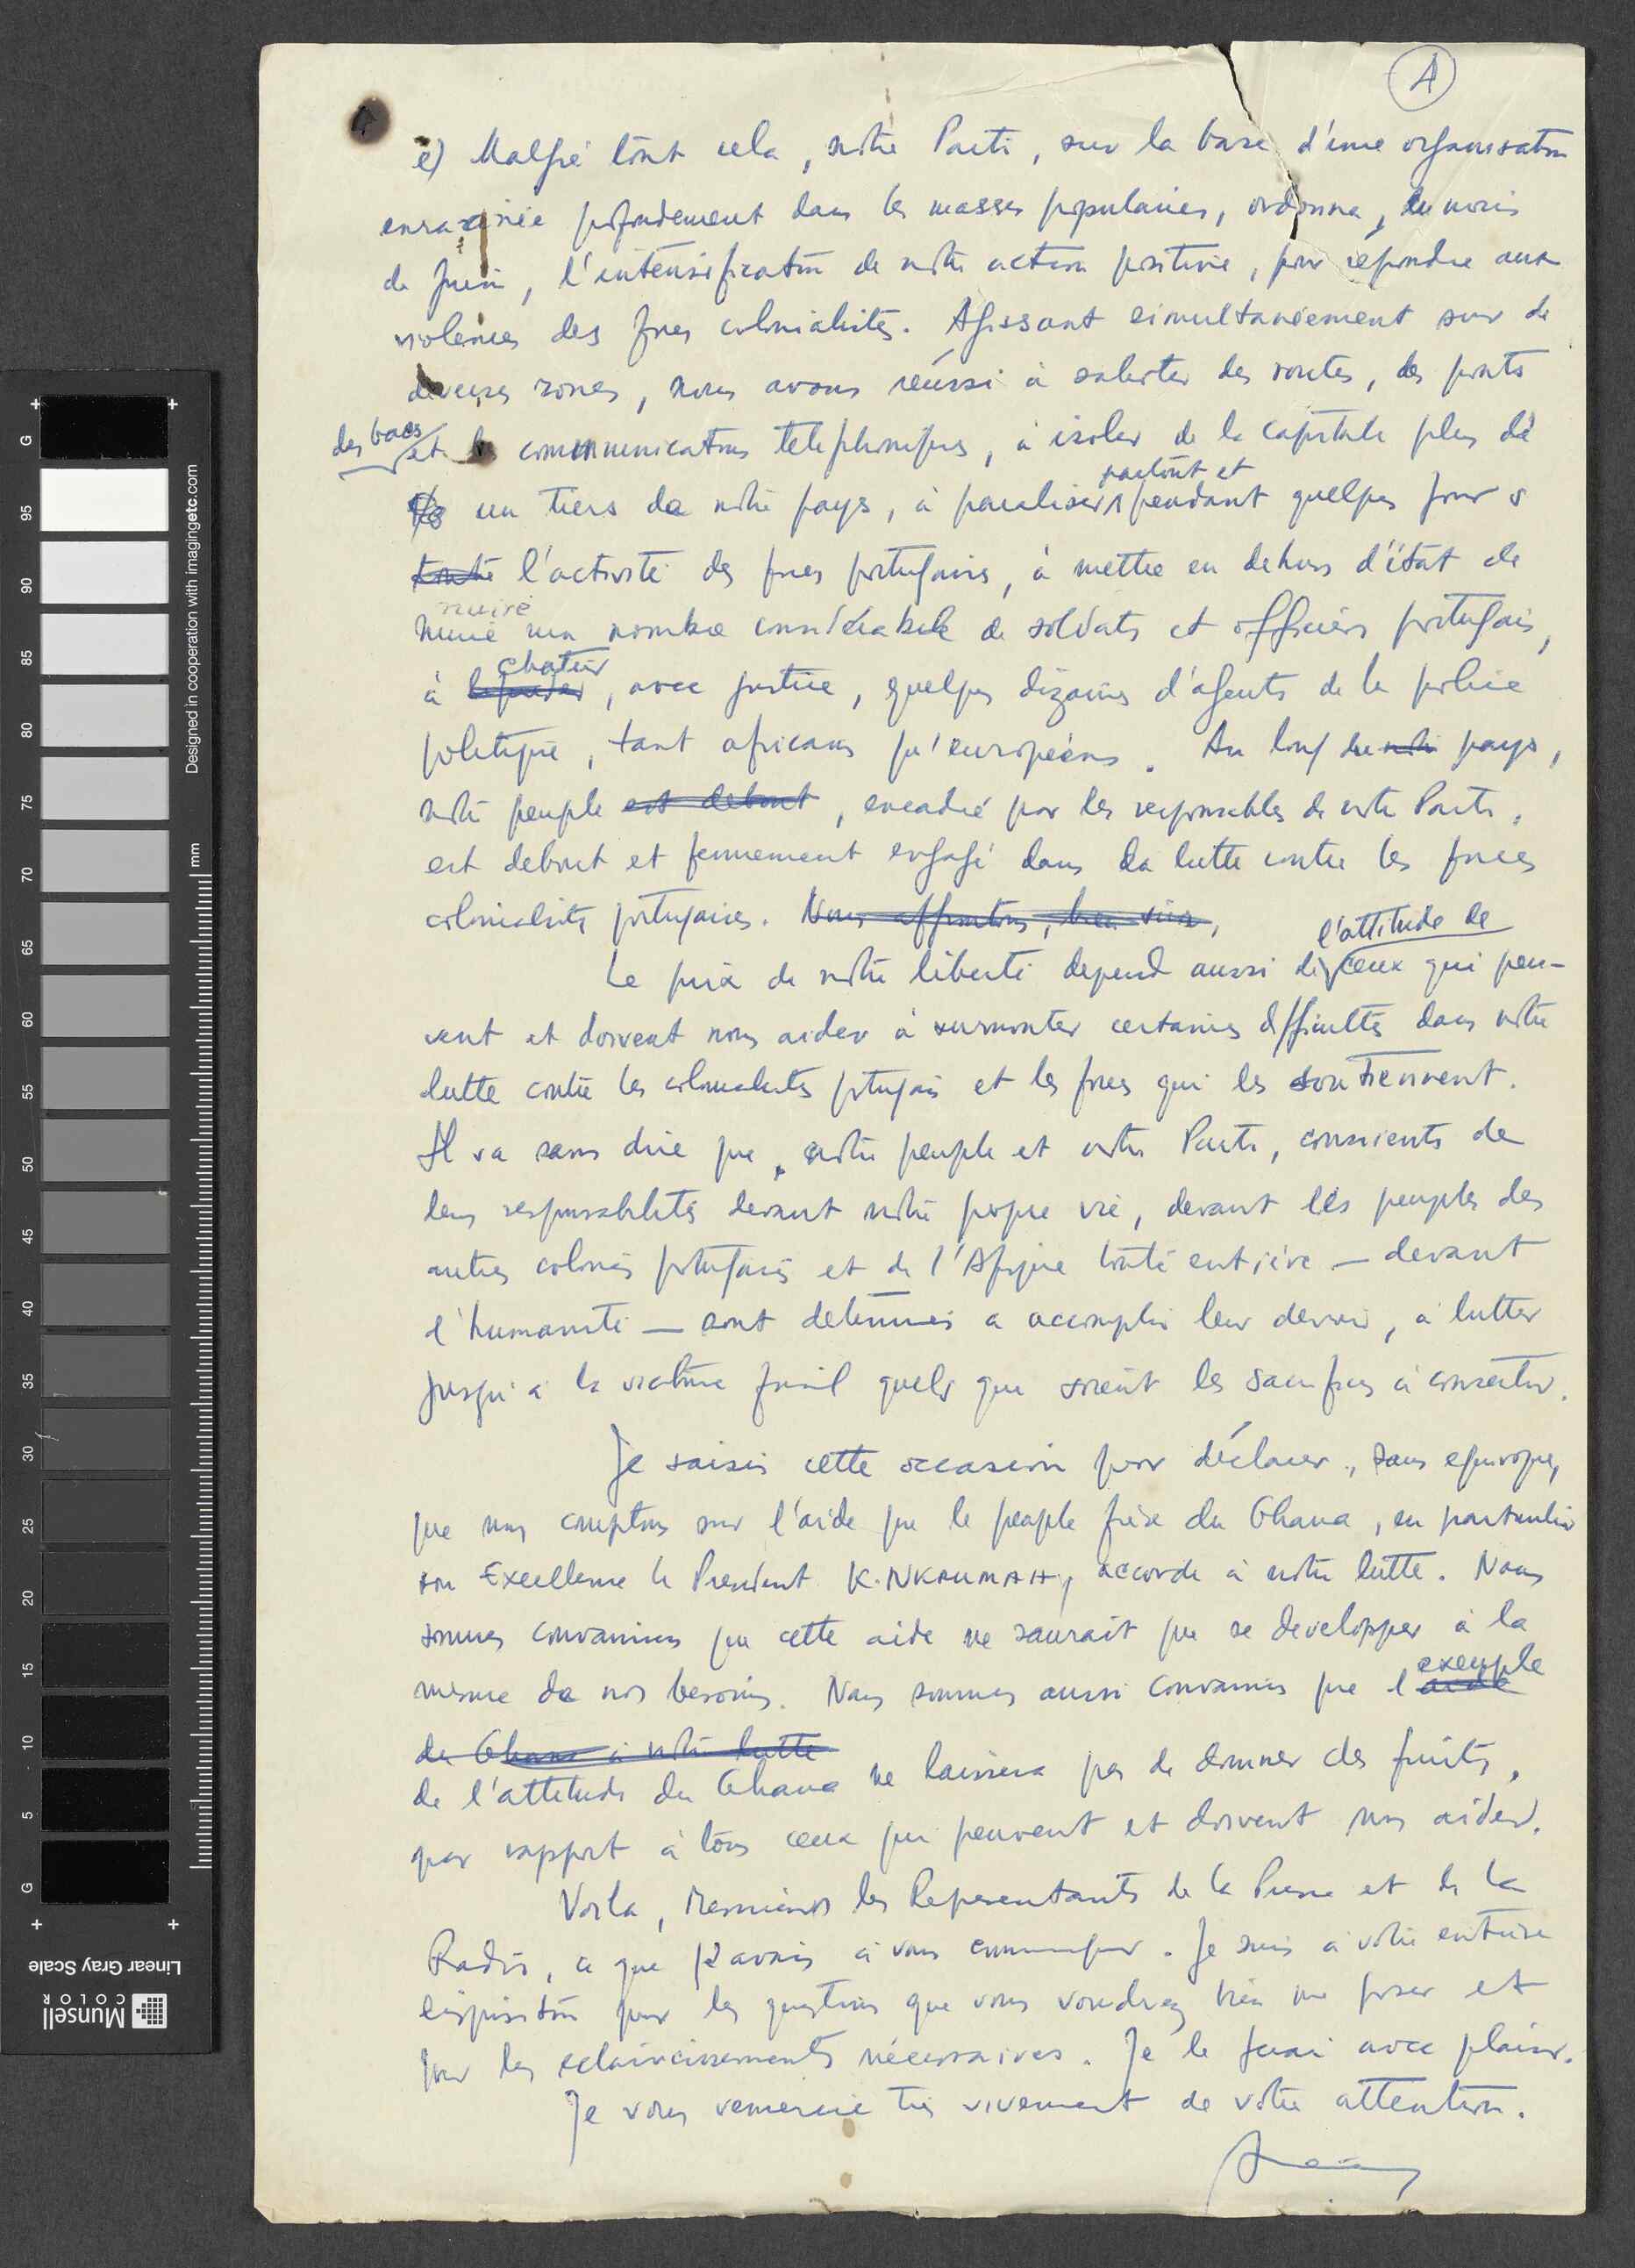 A
e) Malgré tout cela, notre Parti, sur la base d'une organisation
enracinée profondement dans les masses populaires, ordonna, du mois
de Juin, l'intensification de notre action positive, pour répondre aux
violences des forces colonialistes. Agissant simultanéement sur de
diverses zones, nous avons réussi à saboter des routes, des ponts
des bacs et les communications telephoniques, à isoler de la capitale plus de
un tiers de notre pays, à paraliser partout et pendant quelques jours
toute l'activité des forces portugaises, à mettre en dehors d'état de
nuire
nuire un nombre considérable de soldats et officiers portugais,
à chatier, avec justice, quelques dizaines d'agents de la police
politique, tant africains qu'européens. Au long du notre pays,
notre peuple est debout, encadré par les responsables de notre Parti,
est debout et fermement engagé dans la lutte contre les forces
colonialistes portugaises. Nous affrontons, bien sûr,
Le prix de notre liberté depend aussi de l'attitude de ceux qui peu-
vent et doivent nous aider à surmonter certaines difficultés dans notre
lutte contre les colonialistes portugais et les forces qui les soutiennent.
Il va sans dire que, notre peuple et notre Parti, conscients de
leurs responsabilités devant notre propre vie, devant les peuples des
autres colonies portugaises et de l'Afrique toute entière — devant
l'humanité — sont determinés a accomplir leur devoir, à lutter
jusqu'à la victoire final quels que soient les sacrifices à consentir.
Je saisis cette occasion pour déclarer, sans equivoque,
que nous comptons sur l'aide que le peuple frère du Ghana, en particulier
son Excellence le President K. NKRUMAH, accorde à notre lutte. Nous
sommes convaincus que cette aide ne saurait que se developper à la
mesure de nos besoins. Nous sommes aussi convaincus que l'aide exemple
du Ghana à notre lutte
de l'attitude du Ghana ne laissera pas de donner des fruits,
par rapport à tous ceux qui peuvent et doivent nous aider.
Voila, Messieurs les Representants de la Presse et de la
Radio, ce que j'avais à vous communiquer. Je suis à votre entière
disposition pour les questions que vous voudrez bien me poser et
pour les eclaircissements nécessaires. Je le ferai avec plaisir.
Je vous remercie très vivement de votre attention.
Linear Gray Scale
Munsell
COLOR
Designed in cooperation with imagingetc.com
mm
G 95 90 85 80 75 70 65 60 55 50 45 40 35 30 25 20 15 10 5 G